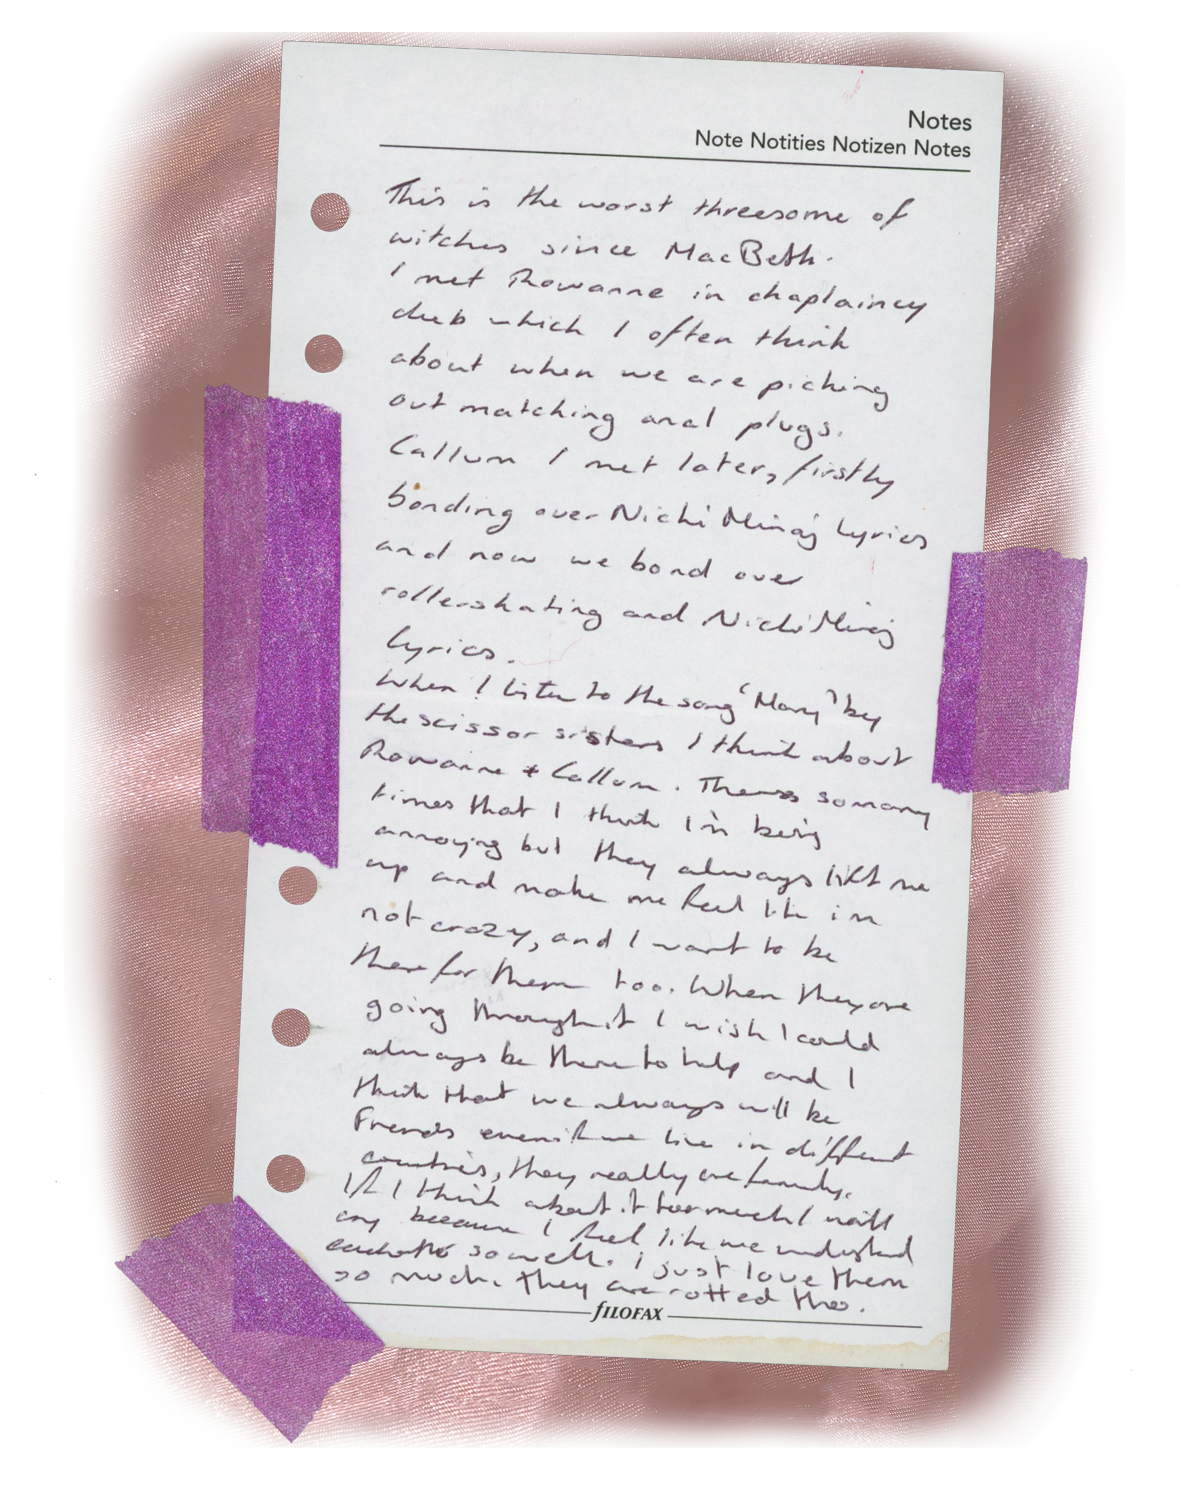 Notes
Note Notities Notizen Notes
This is the worst threesome of
witches since MacBeth.
I met Rowanne in chaplaincy
club which I often think
about when we are picking
out matching anal plugs.
Callum I met later, firstly
bonding over Nicki Minaj lyrics
and now we bond over
rollerskating and Nicki Minaj
lyrics.
When I listen to the song 'Mary' by
the scissor sisters I think about
Rowanne + Callum. Theres so many
times that I think I'm being
annoying but they always lift me
up and make me feel like im
not crazy, and I want to be
there for them too. When they are
going through it I wish I could
always be there to help and I
think that we always will be
Friends even if we live in different
countries, they really are family.
If I think about it too much I will
cry because I feel like we understand
eachother so well. i just love them
so much. They are rotted tho.
fILOFAX